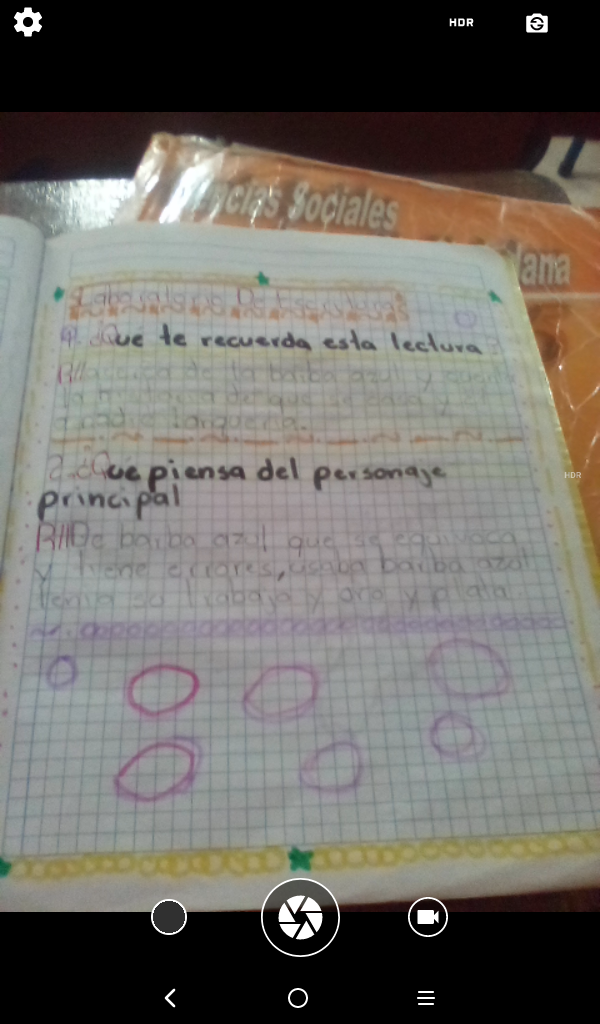 HDR
Ciencias Sociales
Laboratorio De Escrituras
1. ¿Que te recuerda esta lectura?
R// acerca de la barba azul y
la historia de que se casa y
a nadie
2. ¿Que piensa del personaje
principal
R// De barba azul que se equivoca
y tiene errores, usaba barba azul
tenia su trabajo y oro y plata.
HDR